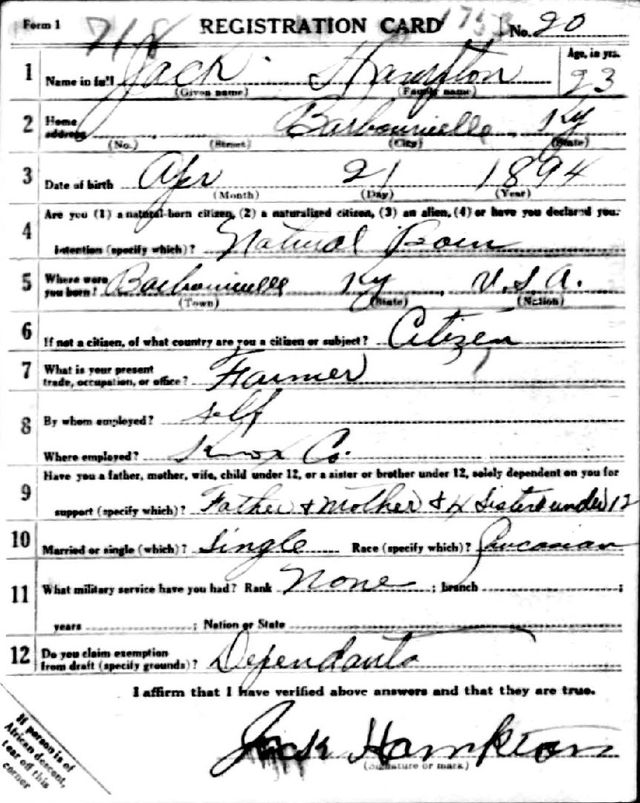 Form 1 718 REGISTRATION CARD 1753 No. 20
1 Name in full Jack Hampton Age, in yrs. 23
(Given name) (Family name)
2 Home address Barbourville, Ky
(No.) (Street) (City) (State)
3 Date of birth Apr 21 1894
(Month) (Day) (Year)
Are you (1) a natural-born citizen, (2) a naturalized citizen, (3) an alien, (4) or have you declared your
4 intention (specify which)? Natural Born
5 Where were you born? Barbourville Ky, U.S.A.
(Town) (State) (Nation)
6 If not a citizen, of what country are you a citizen or subject? Citizen
7 What is your present trade, occupation, or office? Farmer
8 By whom employed? self
Where employed? Knox Co.
9 Have you a father, mother, wife, child under 12, or a sister or brother under 12, solely dependent on you for
support (specify which)? Father & Mother & 4 Sisters under 12
10 Married or single (which)? Single Race (specify which)? Caucasian
11 What military service have you had? Rank None; branch ;
years ; Nation or State
12 Do you claim exemption from draft (specify grounds)? Dependants
I affirm that I have verified above answers and that they are true.
Jack Hampton
(Signature or mark)
If person is of
African descent,
tear off this
corner